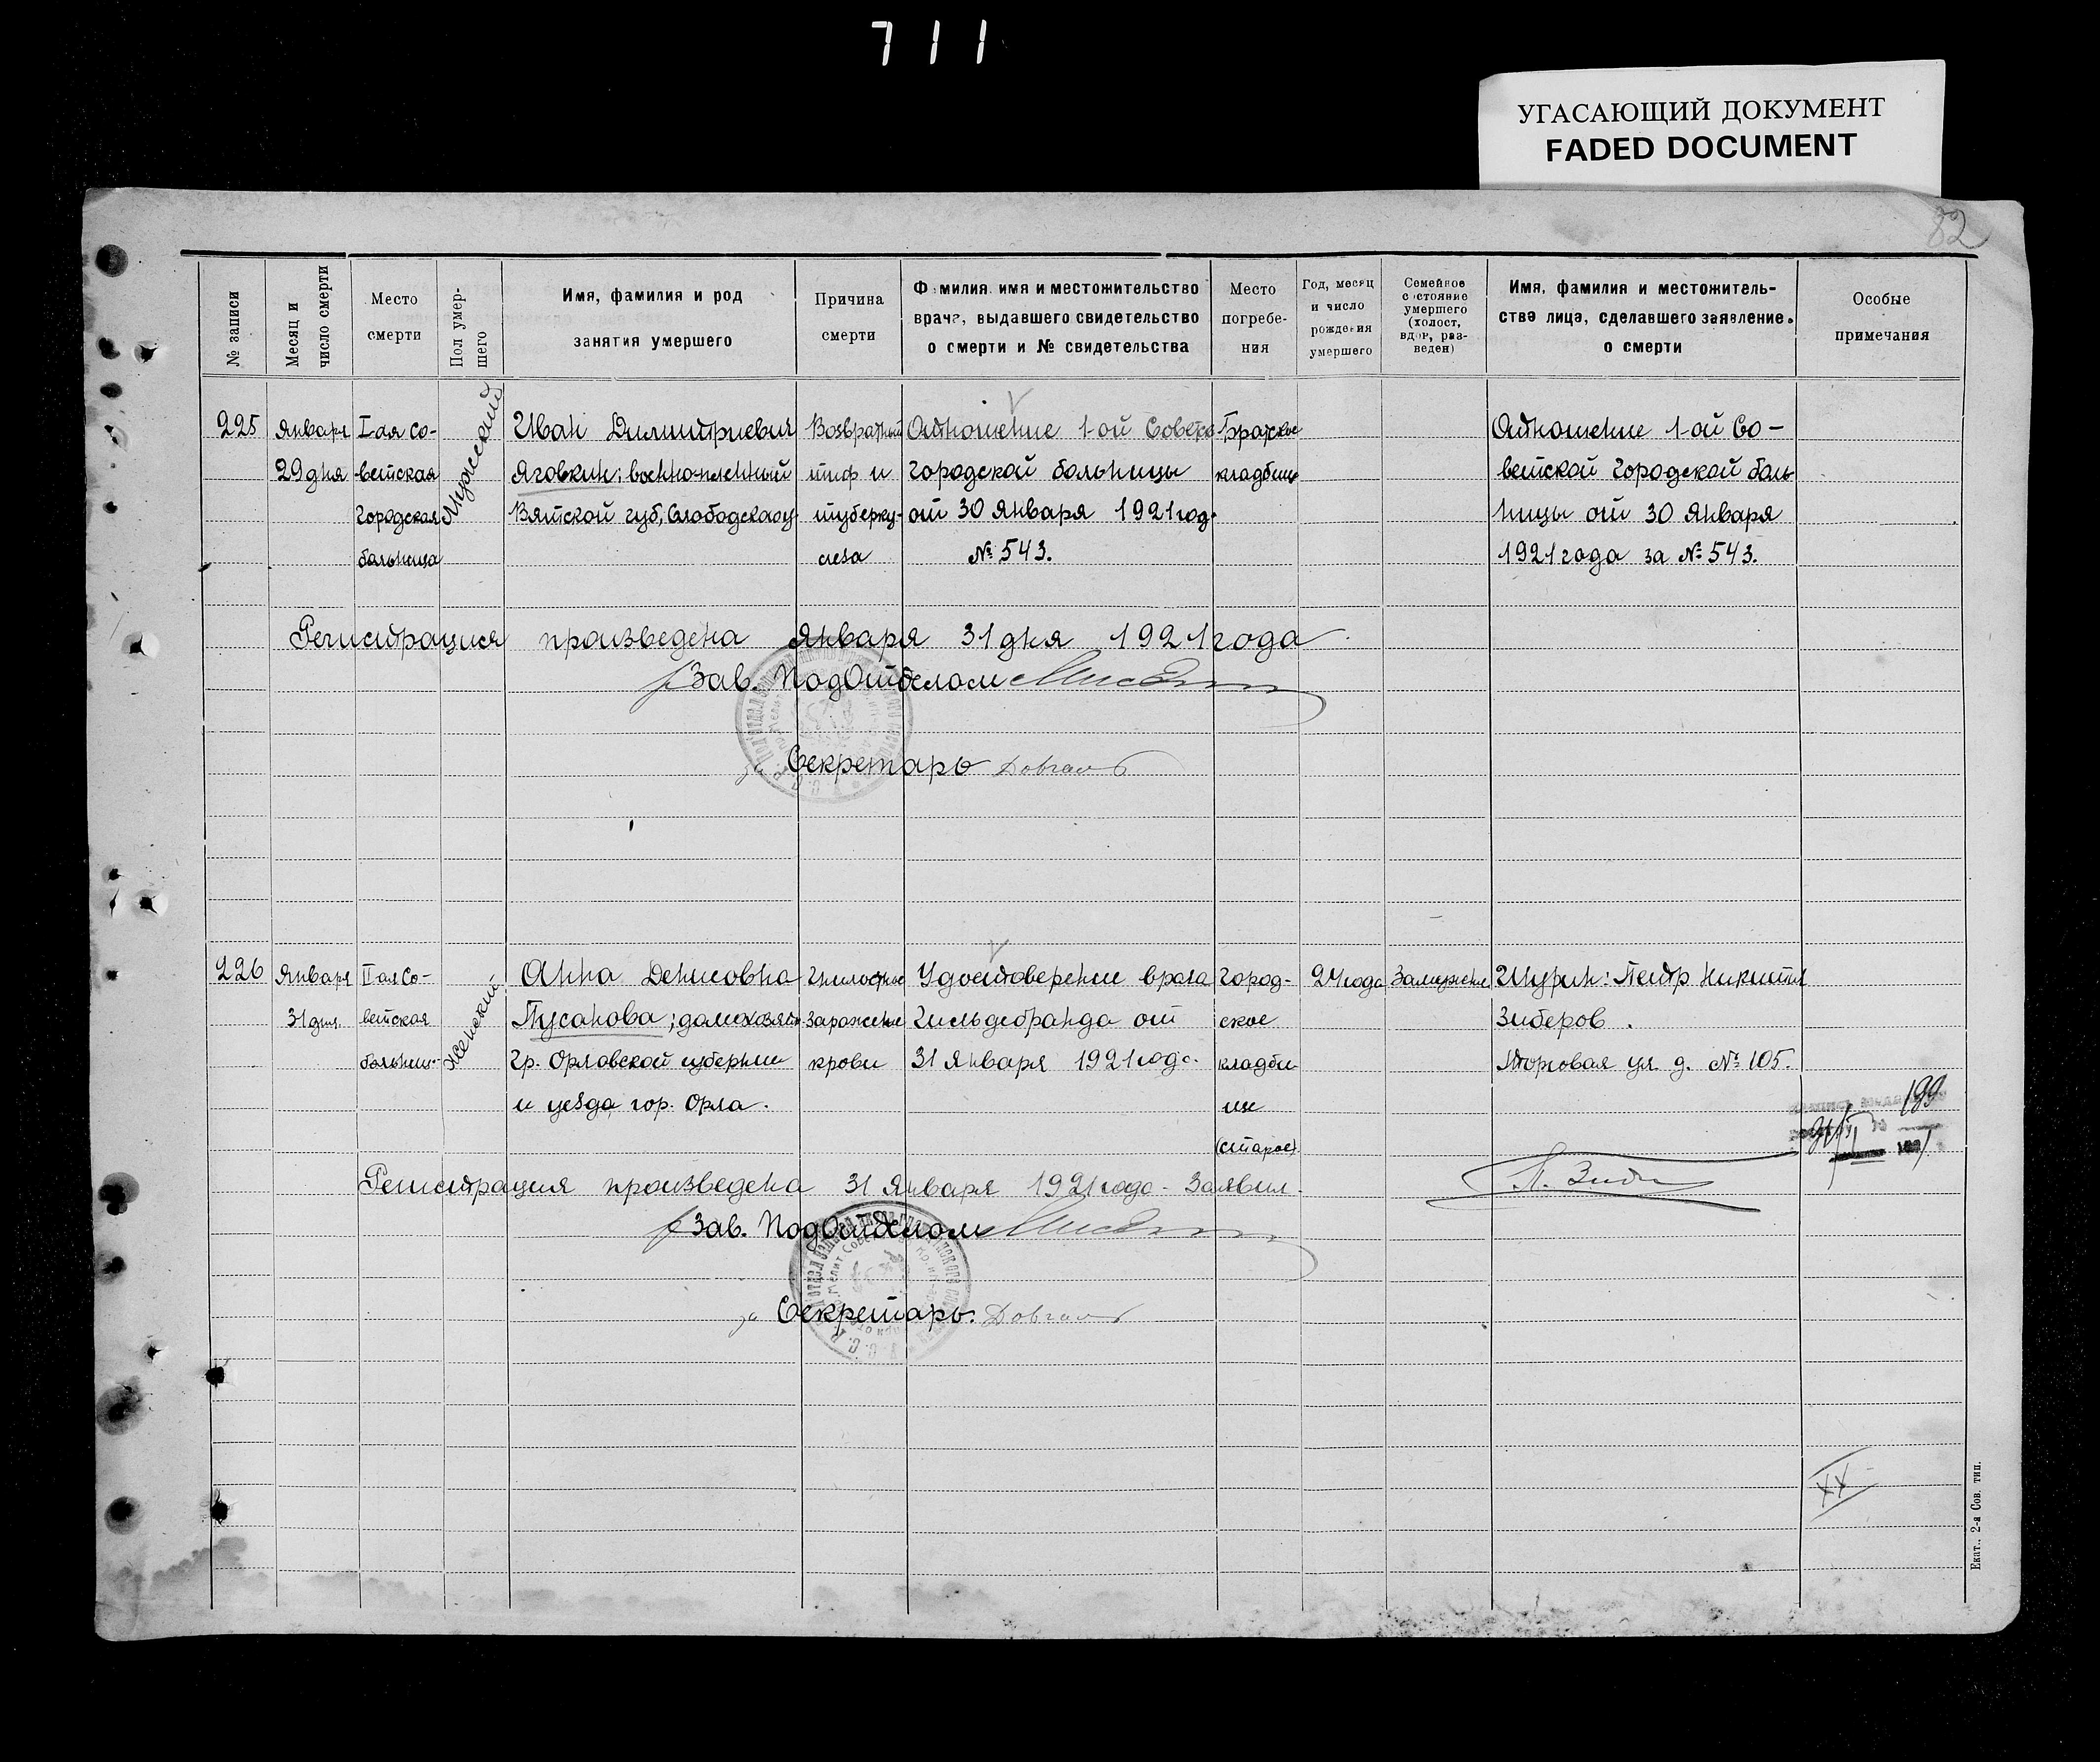 711
УГАСАЮЩИЙ ДОКУМЕНТ
FADED DOCUMENT
82
№ записи
Месяц и число смерти
Место смерти
Пол умершего
Имя, фамилия и род занятия умершего
Причина смерти
Фамилия имя и местожительство врача, выдавшего свидетельство о смерти и № свидетельства
Место погребения
Год, месяц и число рождения умершего
Семейное состояние умершего (холост, вдов, разведен)
Имя, фамилия и местожительство лица, сделавшего заявление о смерти
Особые примечания
225
Января
29 дня
I-ая Со-
ветская
городская
больница
Мужеский
Иван Димитриевич
Яговкин; военно-пленный
Вятской губ, Слободского у.
Возвратный
тиф и
туберку-
леза
Отношение 1-ой Советс
городской больницы
от 30 Января 1921 год.
№ 543.
Братское
кладбище
Отношение 1-ой Со-
ветской городской боль
ницы от 30 Января
1921 года за № 543.
Регистрация произведена Января 31 дня 1921 года
Зав. ПодОтделом
за Секретарь
226
Января
31 дня.
II ая Со-
ветская
больниц
женский
Анна Денисовна
Пусанова; домохозяй
гр. Орловской губернии
и уезда гор. Орла.
Гнилостное
заражение
крови
Удостоверение врача
Гильдебранда от
31 Января 1921 года.
Город-
ское
кладби
ще
(старое)
24 года
Замужняя
Шурин: Петр Никитич
Зиберов.
Торговая ул. д. № 105.
199
Регистрация произведена 31 Января 1921 года - Заявил.
Зав. ПодОтделом
за Секретарь.
XX
Екат., 2-я Сов. тип.